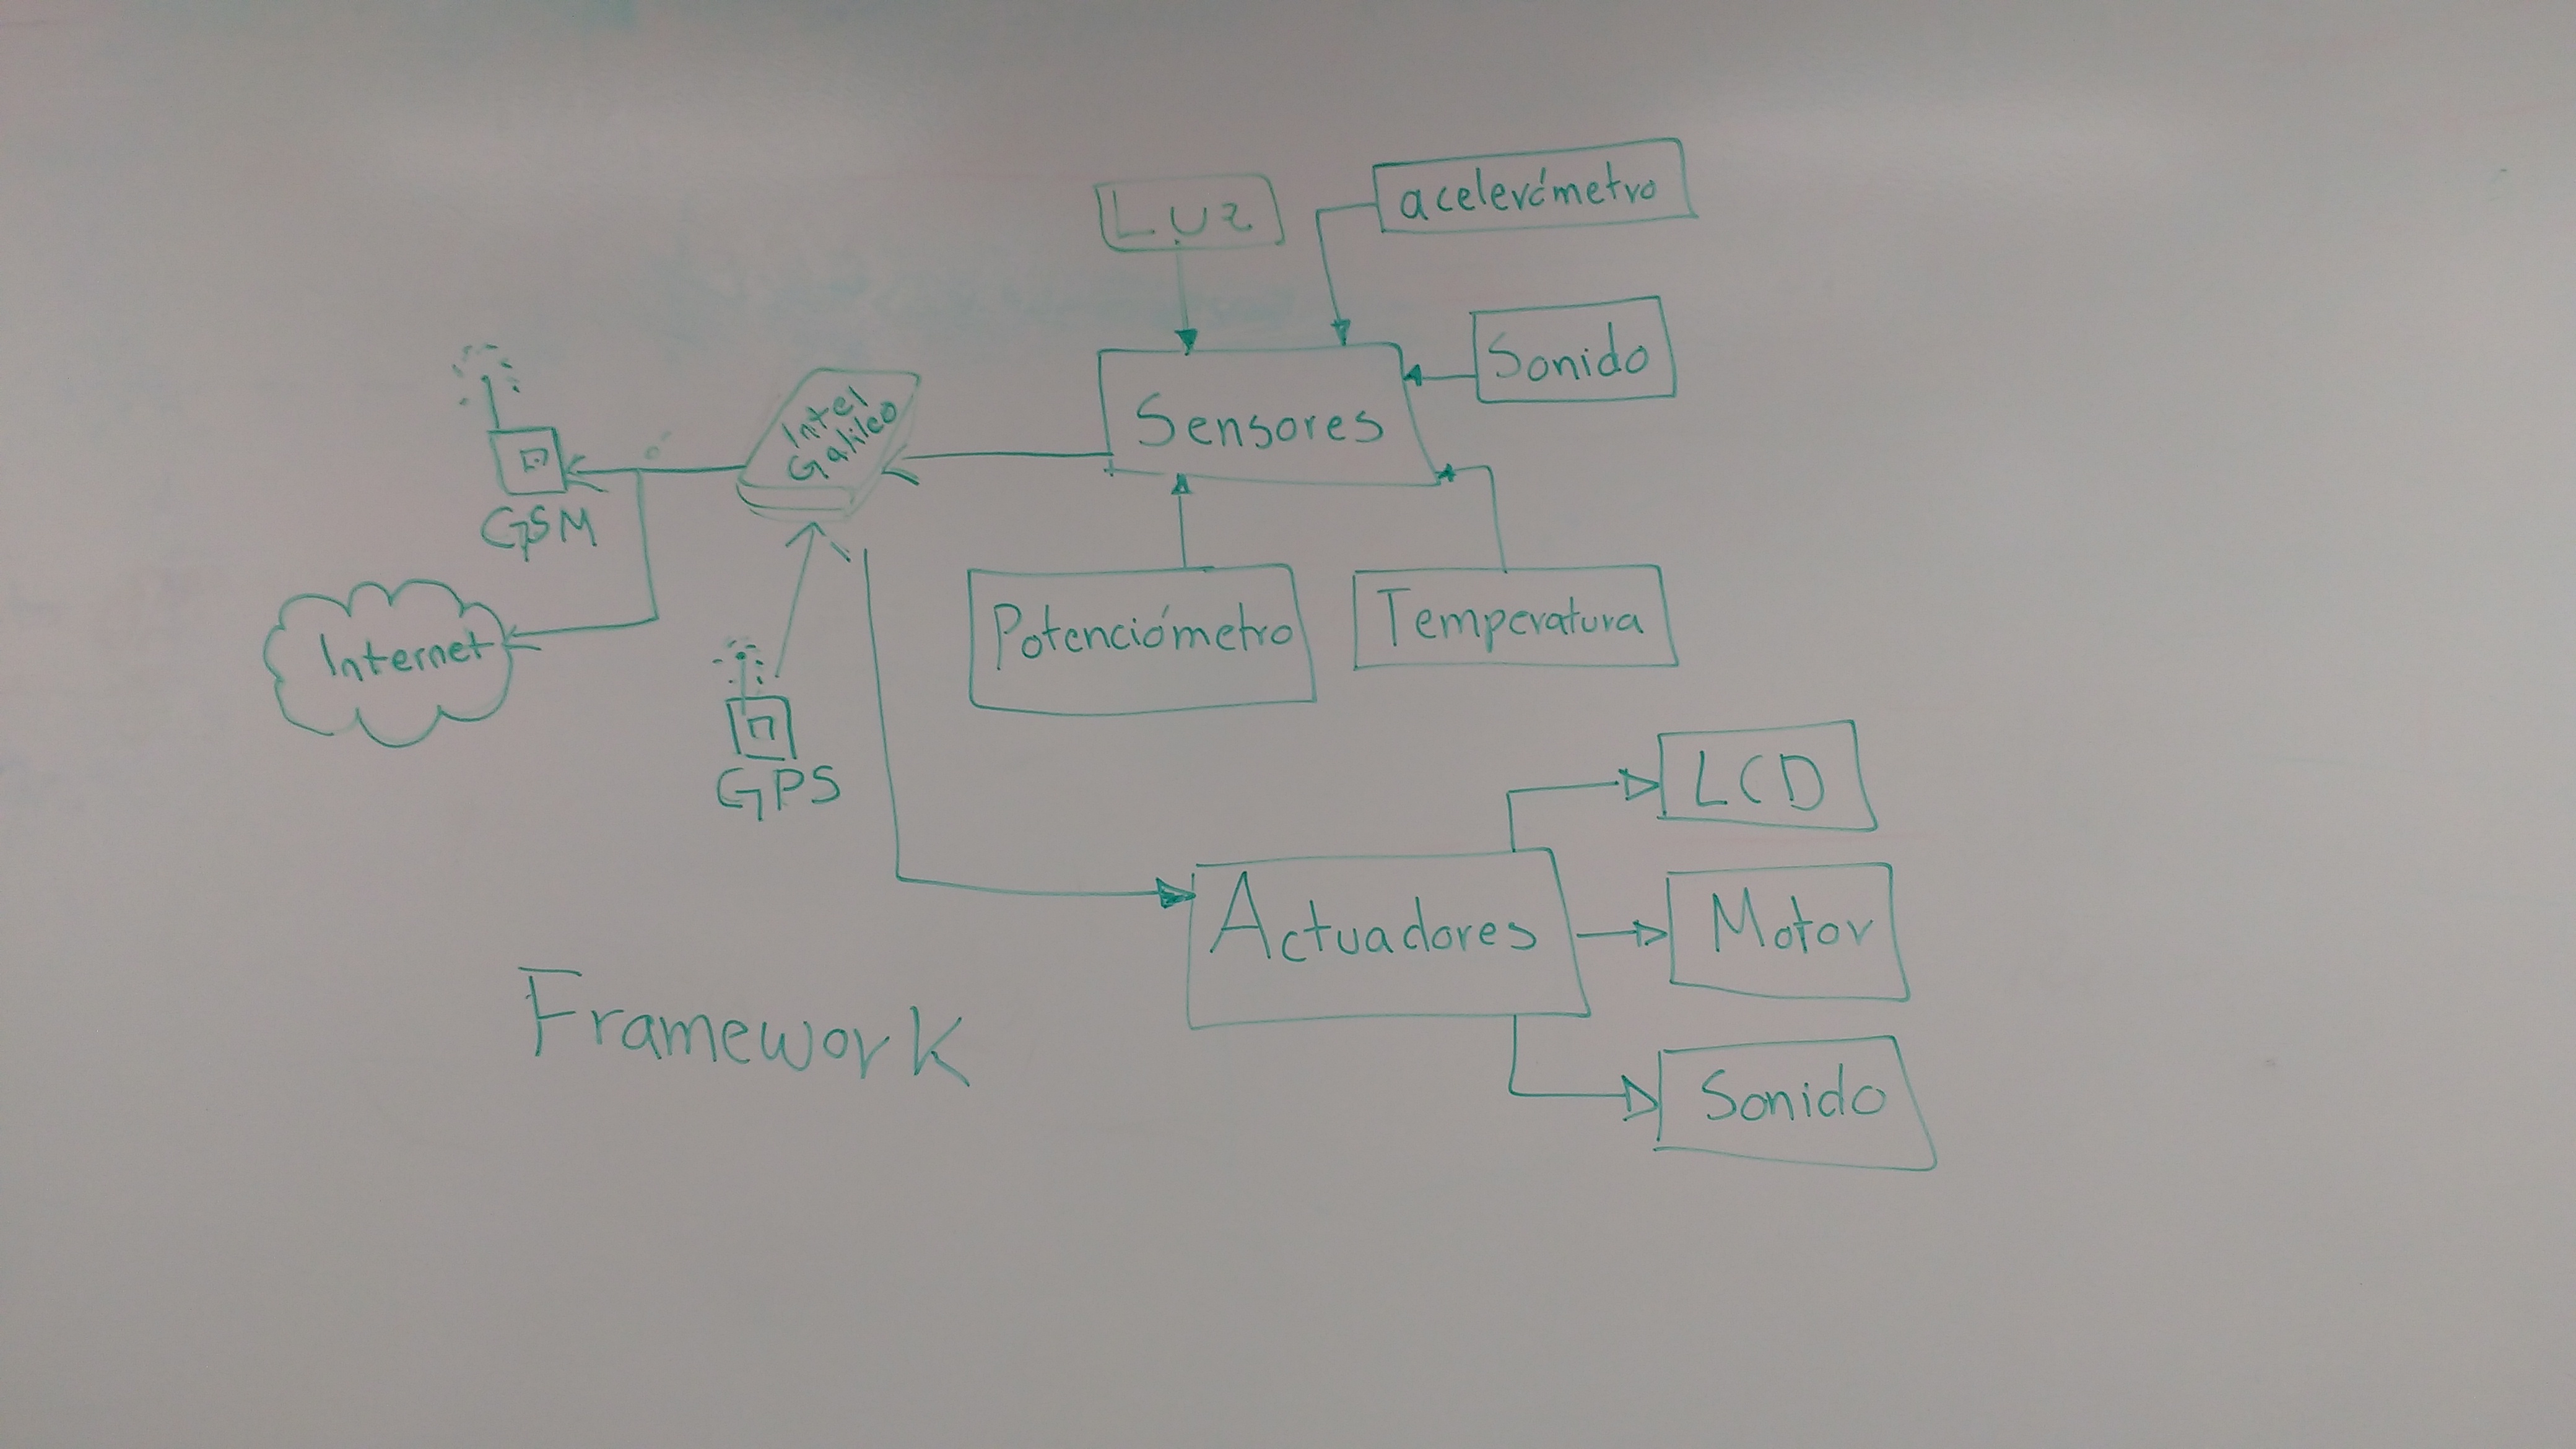 Luz
acelerómetro
Sonido
Sensores
Intel
Galileo
GSM
Internet
Potenciómetro
Temperatura
GPS
LCD
Actuadores
Motor
Sonido
Framework